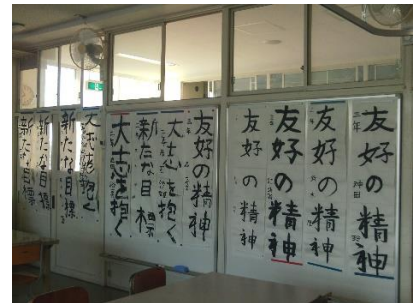 友好の精神
三年
友好の精神
友好の精神
友好の精神
友好の精神
大志を抱く
新たな目標
大志を抱く
大志を抱く
新たな目標
新たな目標
新たな目標